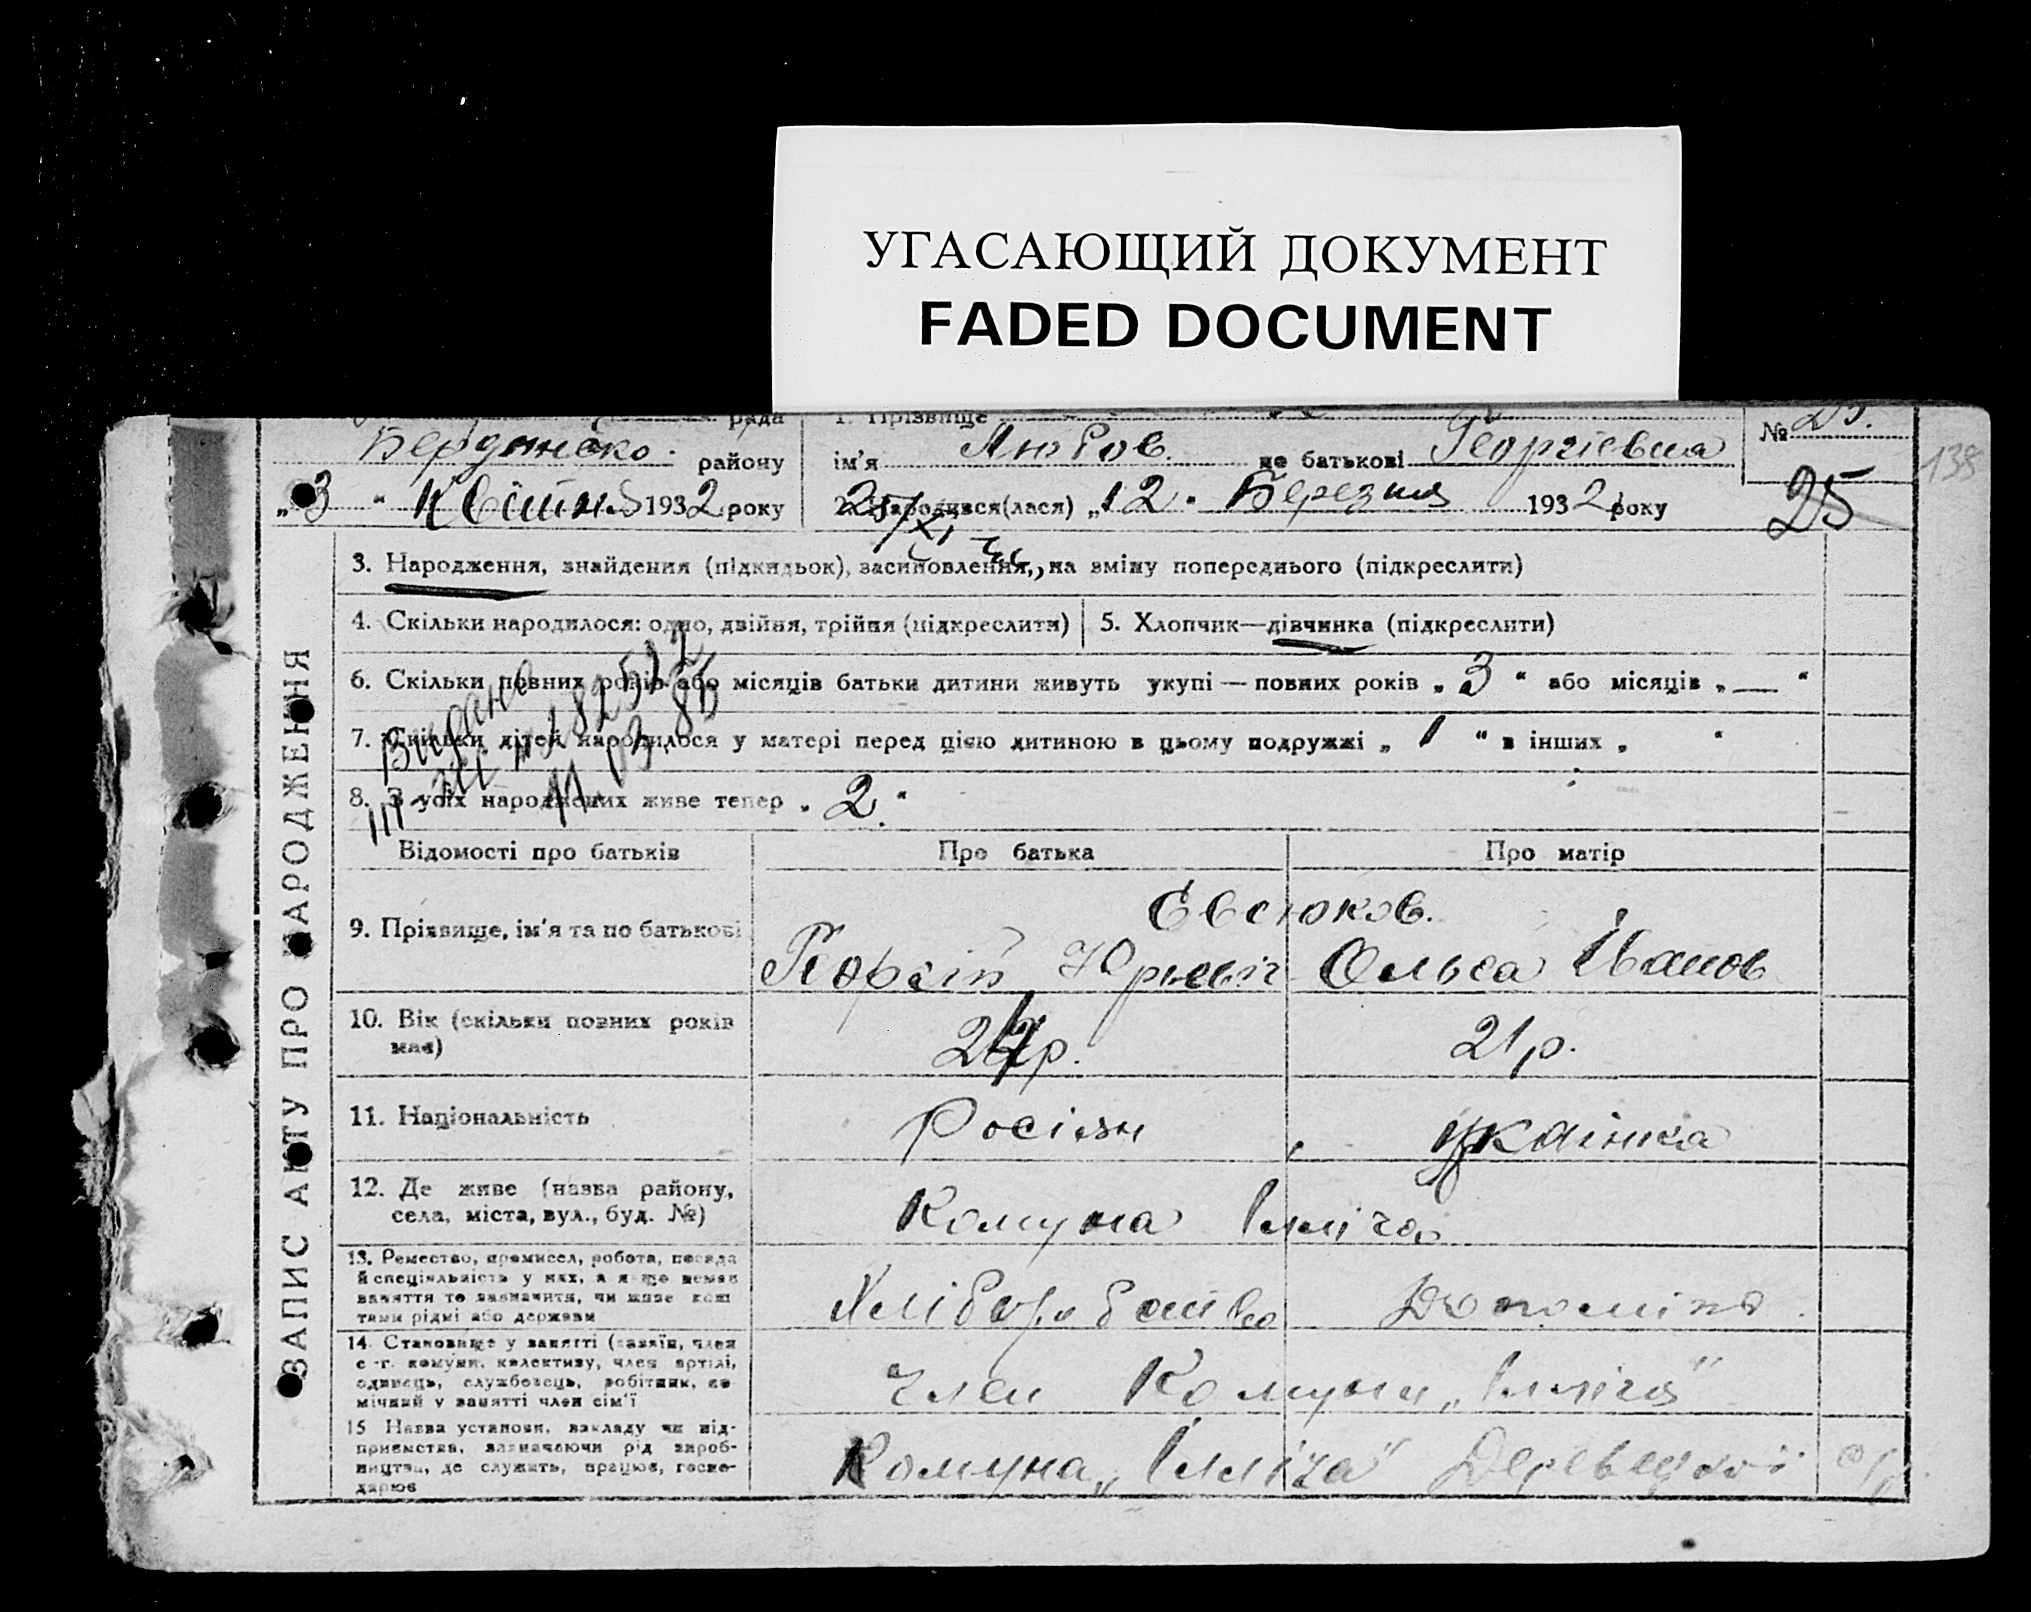 УГАСАЮЩИЙ ДОКУМЕНТ
FADED DOCUMENT
рада
1. Прізвище
№ 25.
Бердянсько. району
ім'я Любов. по батькові Георгієвна
138
„3" Квітня 1932 року
2. Народився(лася) „12" Березня 1932 року
25
25/XI
ЗАПИС АКТУ ПРО НАРОДЖЕННЯ
3. Народження, знайдення (підкидьок), засиновлення, на зміну попереднього (підкреслити)
4. Скільки народилося: одно, двійня, трійня (підкреслити)
5. Хлопчик—дівчинка (підкреслити)
6. Скільки повних років або місяців батьки дитини живуть укупі — повних років „3" або місяців „—"
7. Скільки дітей народилося у матері перед цією дитиною в цьому подружжі „1" в інших „ "
8. З усіх народжених живе тепер „2."
Відомості про батьків
Про батька
Про матір
9. Прізвище, ім'я та по батькові
Євстюков.
Георгій Юрьевіч
Ольга Іванов
10. Вік (скільки повних років має)
24р.
21р.
11. Національність
Росіян
Українка
12. Де живе (назва району, села, міста, вул., буд. №)
Комуна Ілліча
13. Ремество, промисел, робота, посада
й спеціяльність у них, а якщо немає
заняття то зазначити, чи живе кош
тами рідні або держави
Хліборобство
Допоміж
14. Становище у занятті (хазяїн, член
с.-г. комуни, колективу, член артілі,
одинець, службовець, робітник, по
мічний у занятті член сім'ї
Член Комуни „Ілліча"
15 Назва установи, закладу чи під-
приємства, зазначаючи рід вироб-
ництва, де служить, працює, госпо-
дарює
Комуна „Ілліча"
Видано
III-
№282512
11.03.85